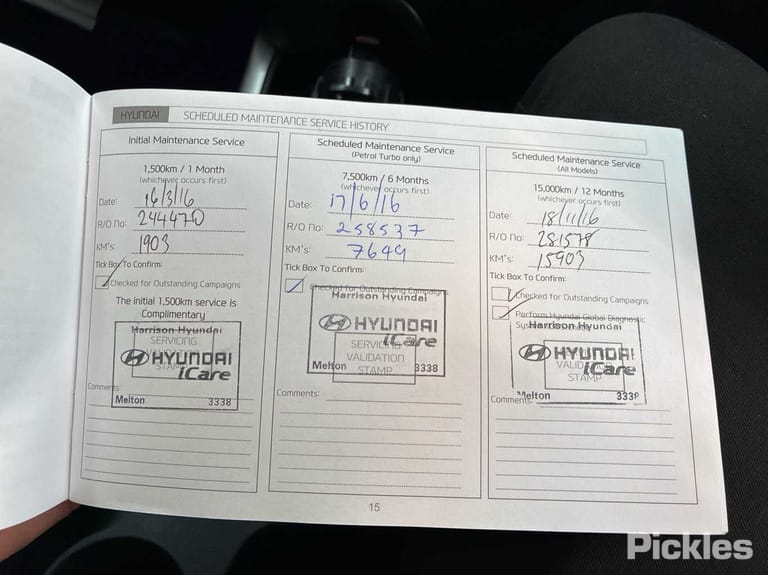 HYUNDAI SCHEDULED MAINTENANCE SERVICE HISTORY
Initial Maintenance Service
1,500km / 1 Month
(whichever occurs first)
Date: 16/3/16
R/O No: 244470
KM's: 1903
Tick Box To Confirm:
Checked for Outstanding Campaigns
The initial 1,500km service is
Complimentary
Harrison Hyundai
SERVICING
HYUNDAI
STAMP
iCare
Comments:
Melton 3338
Scheduled Maintenance Service
(Petrol Turbo only)
7,500km / 6 Months
(whichever occurs first)
Date: 17/6/16
R/O No: 258537
KM's: 7649
Tick Box To Confirm:
Checked for Outstanding Campaigns
Harrison Hyundai
HYUNDAI
SERVICING
iCare
VALIDATION
Melton 3338
STAMP
Comments:
Scheduled Maintenance Service
(All Models)
15,000km / 12 Months
(whichever occurs first)
Date: 18/11/16
R/O No: 281578
KM's: 15903
Tick Box To Confirm:
Checked for Outstanding Campaigns
Perform Hyundai Global Diagnostic
Harrison Hyundai
HYUNDAI
VALIDATION
iCare
STAMP
Melton 3338
Comments:
15
Pickles